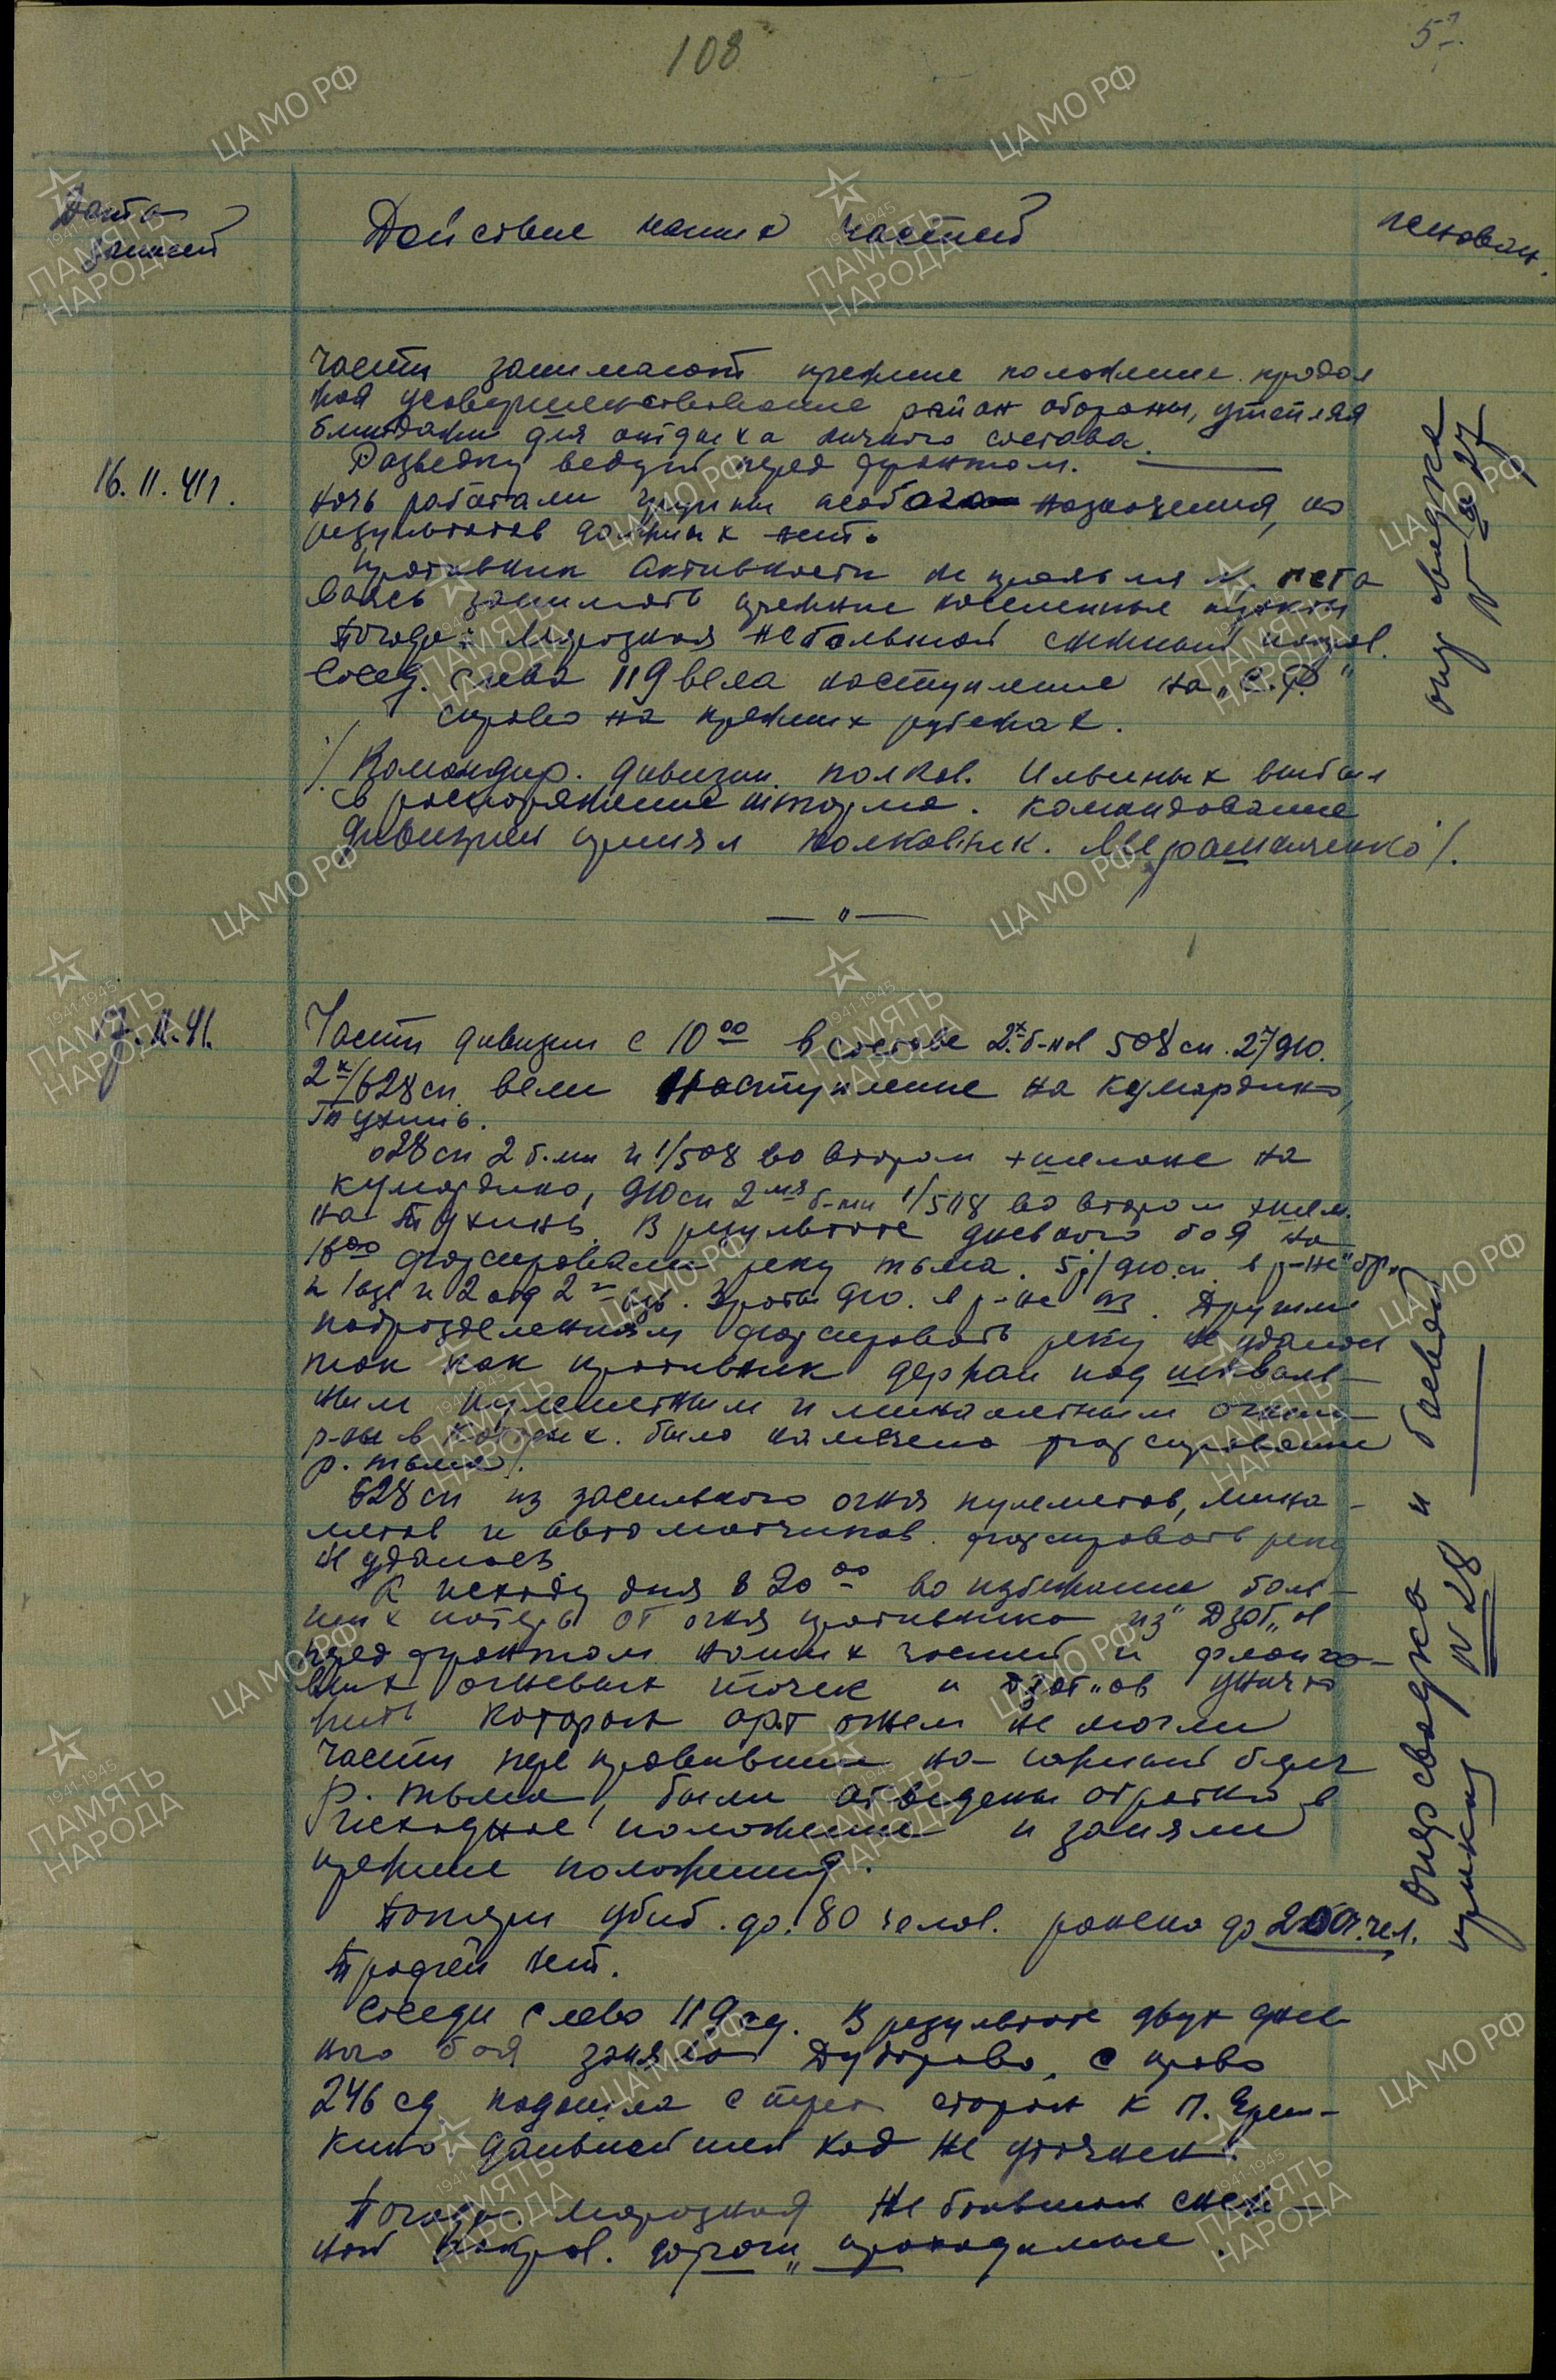 108
57.
Дата записей
Действие наших частей
основан.
16.11.41г.
Части занимают прежнее положение. продол
жая усовершенствование район обороны, утепляя
блиндажи для отдыха личного состава.
Разведку ведут перед фронтом.
Ночь работали группы особого назначения, но
результатов данных нет.
Противник активности не проявлял, оста
ваясь занимать прежние населенные пункты
Погода: Морозная небольшой снежный покров.
Сосед. слева 119 вела наступление на
справа на прежних рубежах.
/Командир. дивизии полков. Ильиных выбыл
в распоряжение шторма. командование
дивизией принял полковник.
опер сводка
№ 27
17.11.41.
Части дивизии с 10 00 в составе 2х б-нов 508 сп. 2
2х/628 сп. вели наступление на Кумордино,
Тухинь.
628 сп 2 б-ми и 1/508 во втором эшелоне на
Кумордино, 910 сп 2мя б-ми 1/508 во втором эшел.
на Тухинь. В результате дневного боя на
18 00 форсировали реку Тьма. 5р/910 сп. в р-не
и 2 отд 2 взв. роты 910. в р-не. Другим
подразделениям форсировать реку не удалось
так как противник держал под шквал-
ным пулеметным и минометным огнем
р-ны в которых. было намечено форсирование
р. Тьма/.
628 сп из за сильного огня пулеметов, мино-
метов и автоматчиков. форсировать реку
не удалось
К исходу дня в 20 00 во избежание боль-
ших потерь от огня противника из "Дзот"ов
перед фронтом наших частей и фланго-
вых огневых точек и дзот"ов уничто
жить которых арт огнем не могли
части переправившие на берег
р. Тьма, были отведены обратно в
исходное положение и заняли
прежние положения.
Потери убит. до. 80 челов. ранено до 200 чел.
Трофей нет.
Соседи слева 119 сд. В результате двух днев
ного боя заняла Дуборово, с права
246 сд. подошла с трех сторон к п.
кино дальнейший ход не уточнен.
Погода: морозная Не большой снеж
ной покров. дороги проходимые.
Опер сводка и боевой
приказ № 28